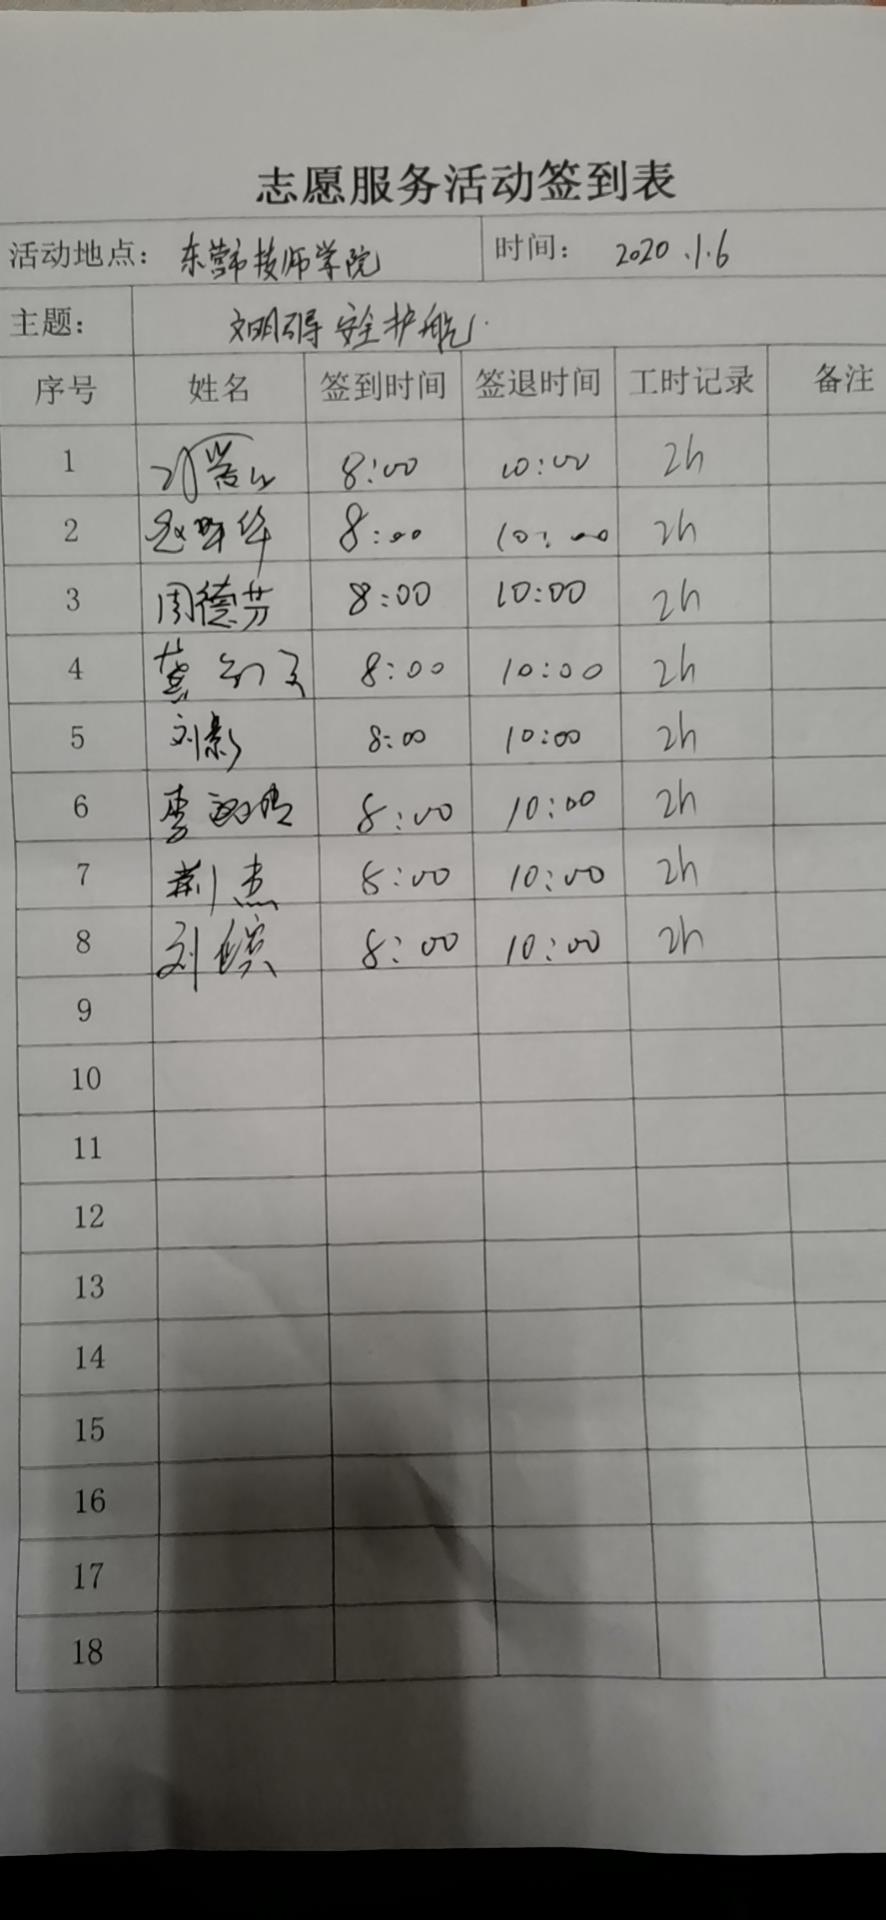 志愿服务活动签到表
活动地点： 东营市技师学院 时间： 2020.1.6
主题： 文明引导 安全护航.
序号 姓名 签到时间 签退时间 工时记录 备注
1 8:00 10:00 2h
2 赵 华 8:00 10:00 2h
3 周德芳 8:00 10:00 2h
4 龚 8:00 10:00 2h
5 刘影 8:00 10:00 2h
6 李 8:00 10:00 2h
7 荆杰 8:00 10:00 2h
8 刘滨 8:00 10:00 2h
9
10
11
12
13
14
15
16
17
18